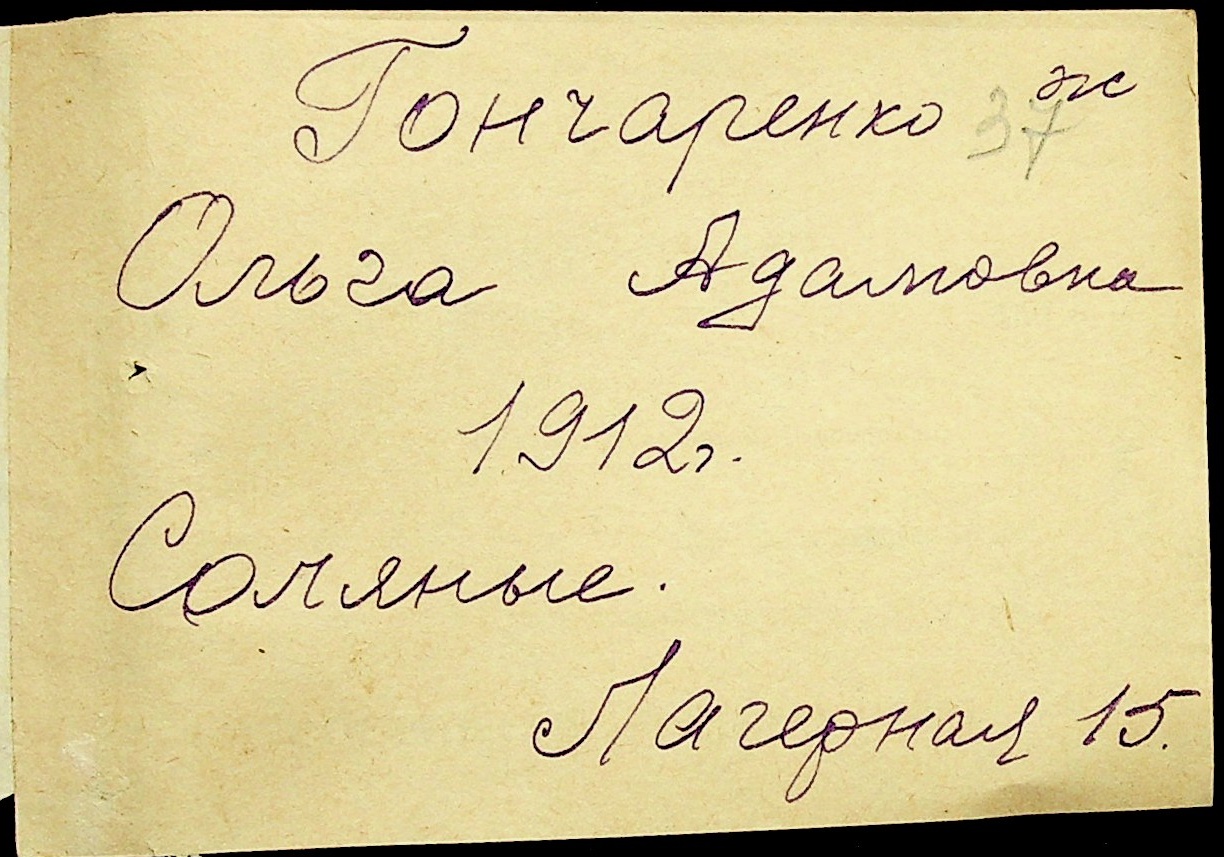 Гончаренко 37 ж
Ольга Адамовна
1912г.
Соляные.
Лагерная 15.